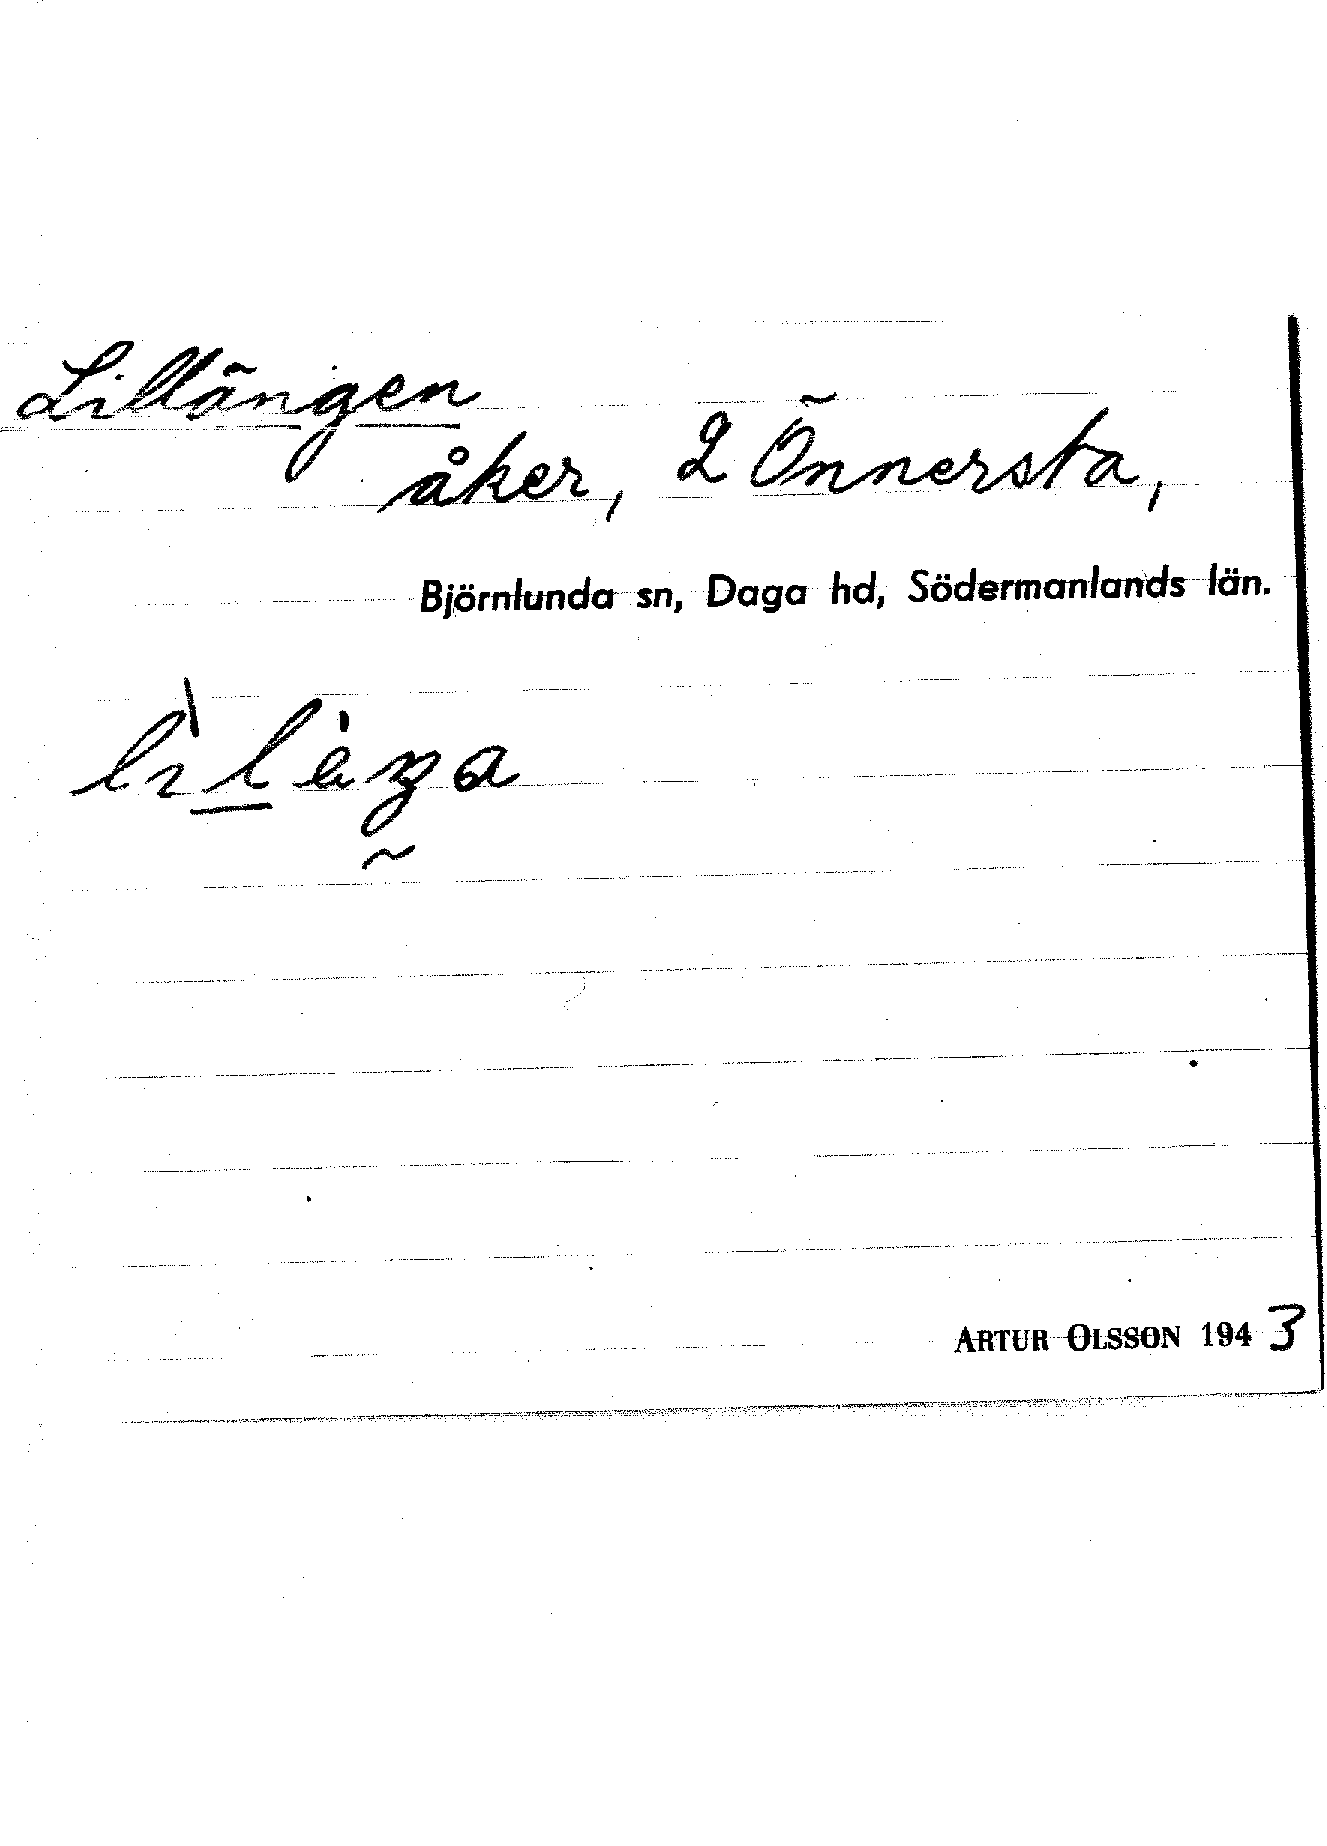 Lillängen
åker, 2 Önnersta,
Björnlunda sn, Daga hd, Södermanlands län.
ARTUR OLSSON 1943